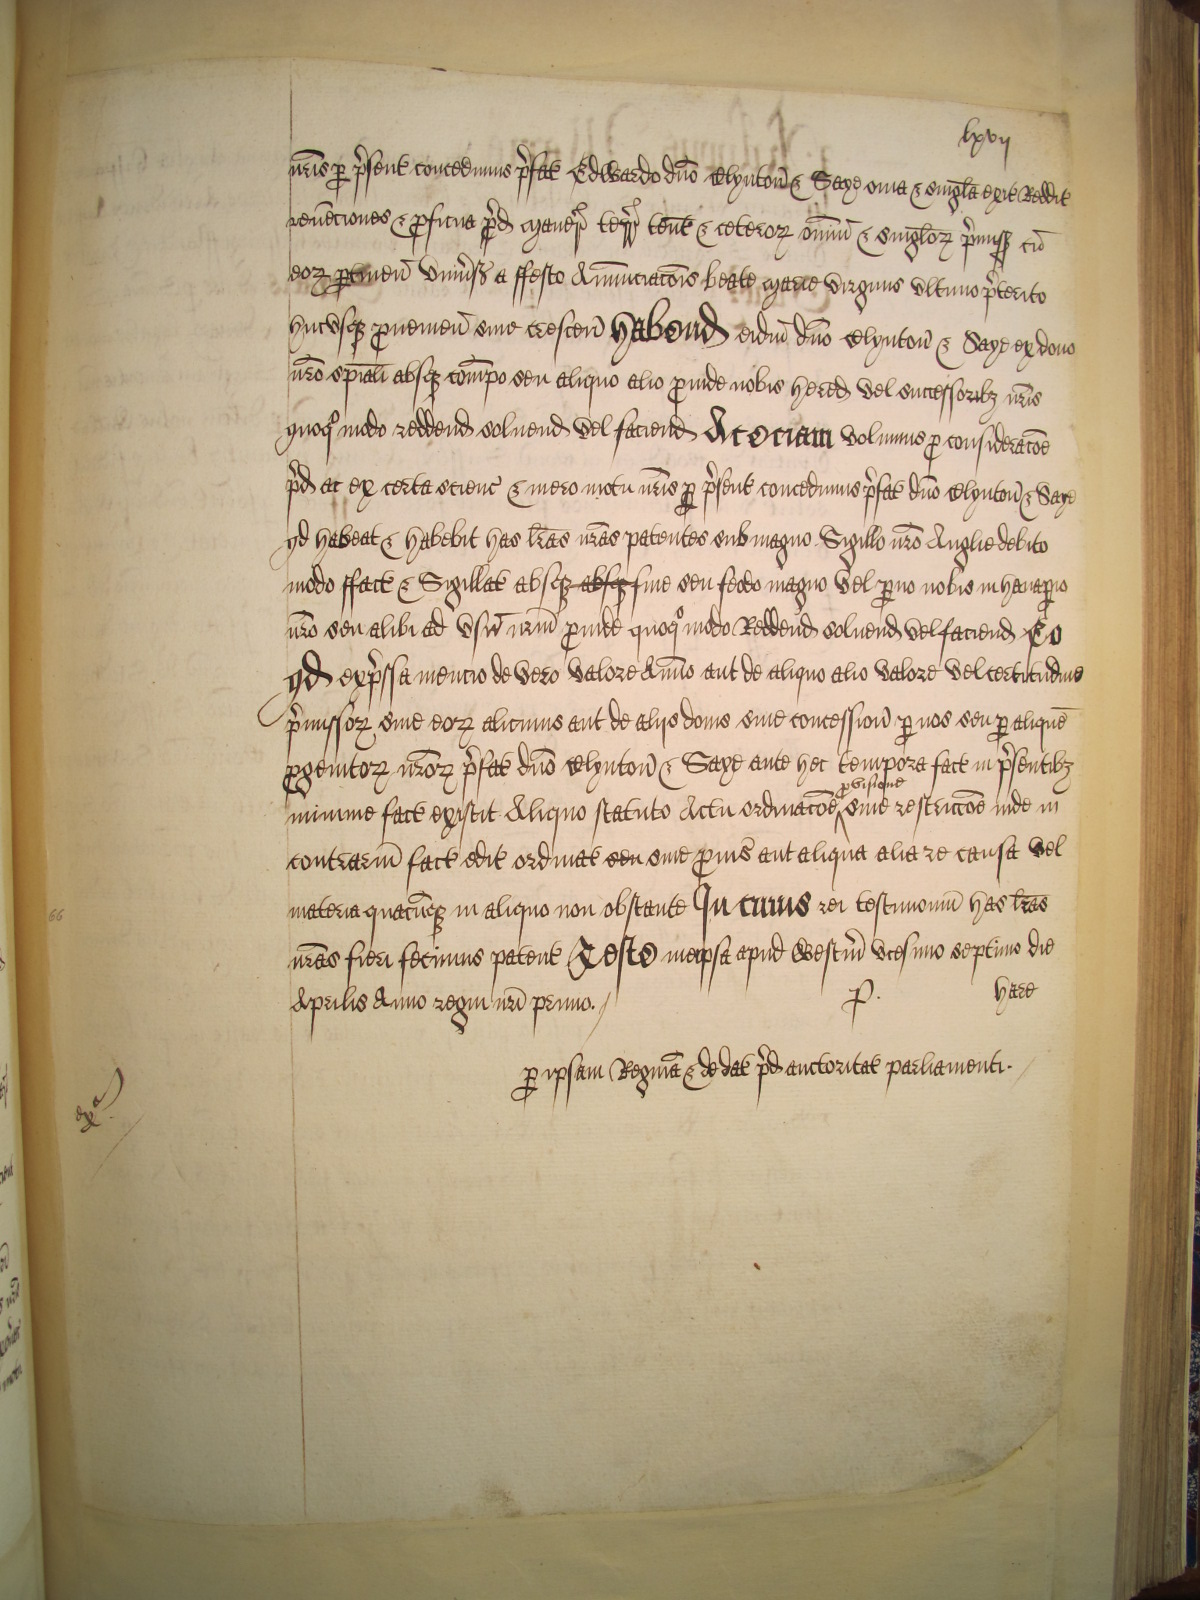 lxvij
nr̄is ꝑ p̄sent concedimus p̄fat Edwardo dn̄o Clynton̄ & Saye om̄ia & singl̄a exit Reddit
revēciones & ꝓficua p̄d maner̄ terr̄ ten̄t & ceteroꝝ om̄iū & singl̄oꝝ p̄missꝝ cū
eoꝝ ꝑtinen̄ vniv̄s̄ a ffesto Annūciacōis beate marie virginis vltimo p̄terito
hucvsqꝫ ꝓvenien̄ sive crescen̄ Habend eidm̄ dn̄o Clynton̄ & Saye ex dono
nr̄o sp̄iali absqꝫ compō seu aliquo alio ꝓinde nobis hered vel successoribꝫ nr̄is
quoqᵒ modo reddend solvend vel faciend Ac eciam volumus ꝓ consideracōe
p̄d ac ex certa scienc̄ & mero motu nr̄is ꝑ p̄sent concedimus p̄fat dn̄o Clynton̄ & Saye
qd habeat & habebit has lr̄as nr̄as patentes sub magno Sigillo nr̄o Anglie debito
modo ffact & Sigillat absqꝫ absqꝫ fine seu feodo magno vel ꝑvo nobis in hanaꝑio
nr̄o seu alibi ad vsū nr̄m ꝓinde quoqᵒ modo Reddend solvend vel faciend Eo
qd exp̄ssa mencio de vero valore Annuo aut de aliquo alio valore vel certitudine
p̄missoꝝ sive eoꝝ alicuius aut de aliis donis sive concession̄ ꝑ nos seu ꝑ aliquē
ꝓgenitoꝝ nr̄oꝝ p̄fat dn̄o Clynton̄ & Saye ante hec tempora fact in p̄sentibꝫ
ꝓvisione
minime fact existit Aliquo statuto Actu ordinacōe sive restriccōe inde in
contrariū fact edit ordinat seu sive ꝓvis̄ aut aliqua alia re causa vel
materia quacūqꝫ in aliquo non obstante In cuius rei testimoniū has lr̄as
nr̄as fieri fecimus patent Teste meipsa apud Westm̄ vicesimo septimo die
Aprilis Anno regni nr̄i primo.
P. hare
ꝑ ipsam Reginā & de dat p̄d auctoritat parliamenti.
exᵃ
66